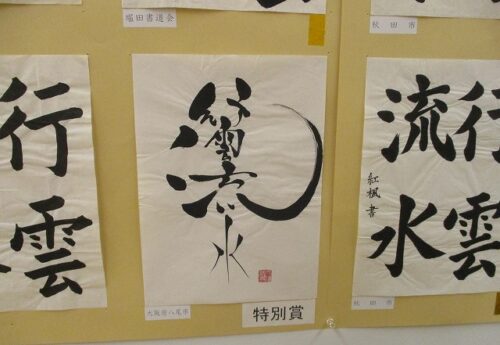 秋田市
行雲
流水
紅楓書
秋田市
行雲流水
大阪府八尾市
特別賞
行雲